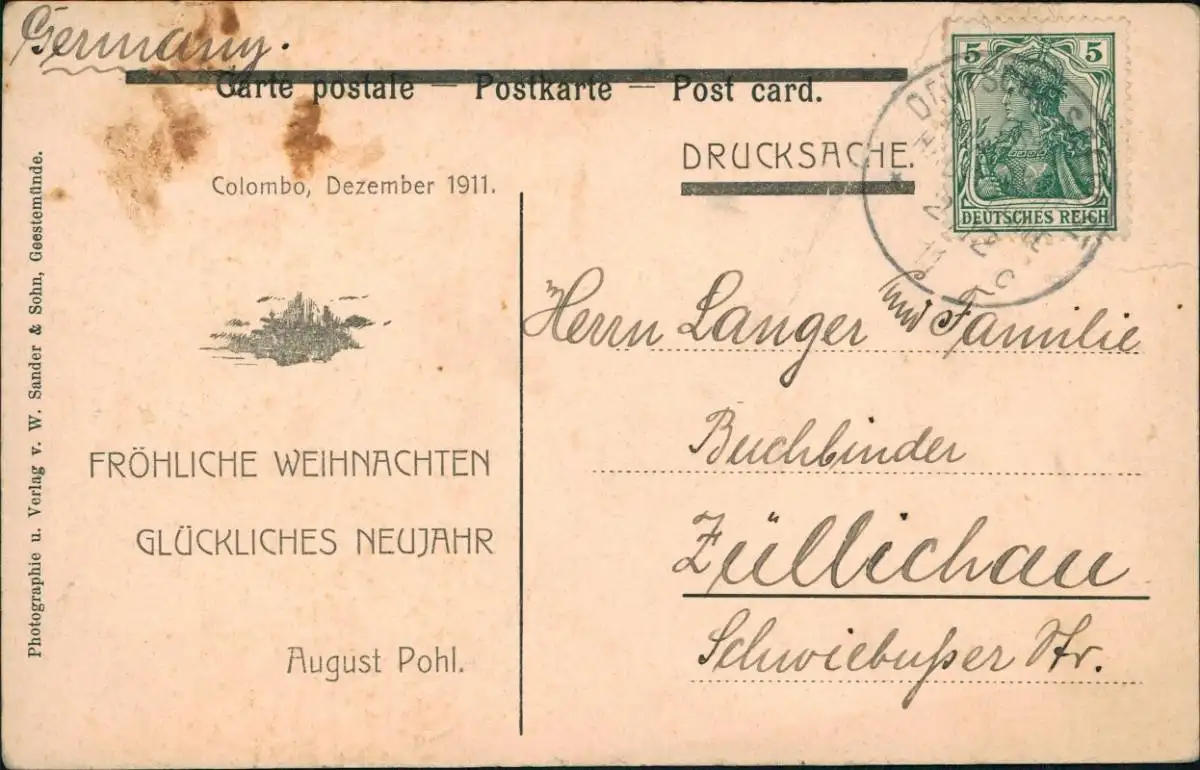 Germany.
Carte postale — Postkarte — Post card.
DRUCKSACHE.
5 5
DEUTSCHES REICH
Colombo, Dezember 1911.
FRÖHLICHE WEIHNACHTEN
GLÜCKLICHES NEUJAHR
August Pohl.
Herrn Langer und Familie
Buchbinder
Züllichau
Schwiebußer Str.
Photographie u. Verlag v. W. Sander & Sohn, Geestemünde.